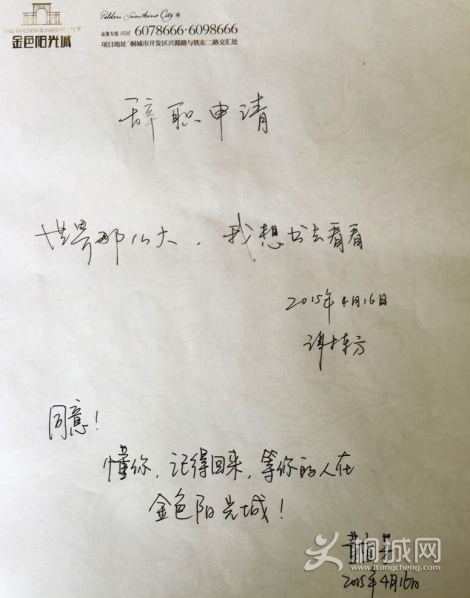 Golden Sunshine City
金色阳光城
GOLDEN SUNSHINE CITY
品鉴专线(0556) 6078666·6098666
项目地址/桐城市开发区兴源路与铁东二路交汇处
辞职申请
世界那么大，我想出去看看
2015年4月16日
同意！
懂你，记得回来，等你的人在
金色阳光城！
2015年4月16日
桐城网
www.itongcheng.com